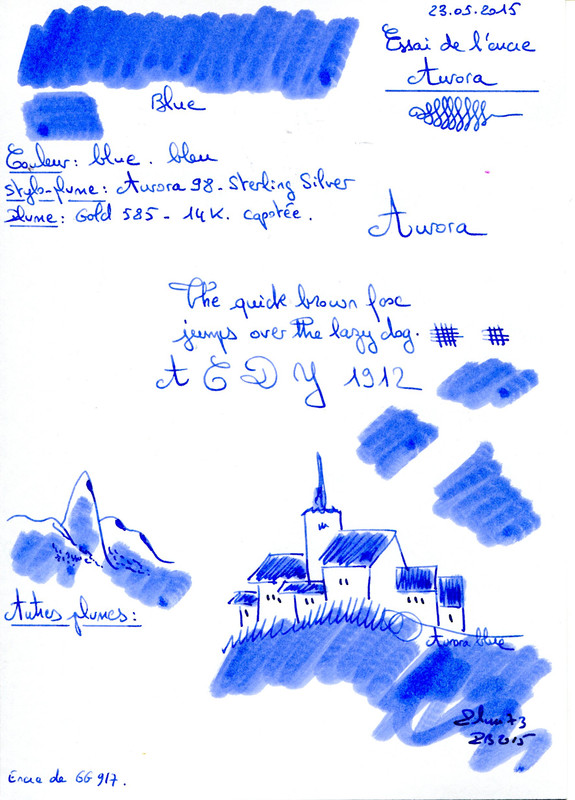 23.05.2015
Essai de l'encre
Aurora
Blue
Couleur: blue. bleu
Stylo-plume: Aurora 98 - Sterling Silver
Plume: Gold 585 - 14K. capotée.
Aurora
The quick brown fox
jumps over the lazy dog.
A E D Y 1912
Autres plumes:
Aurora blue
Encre de GG 917.